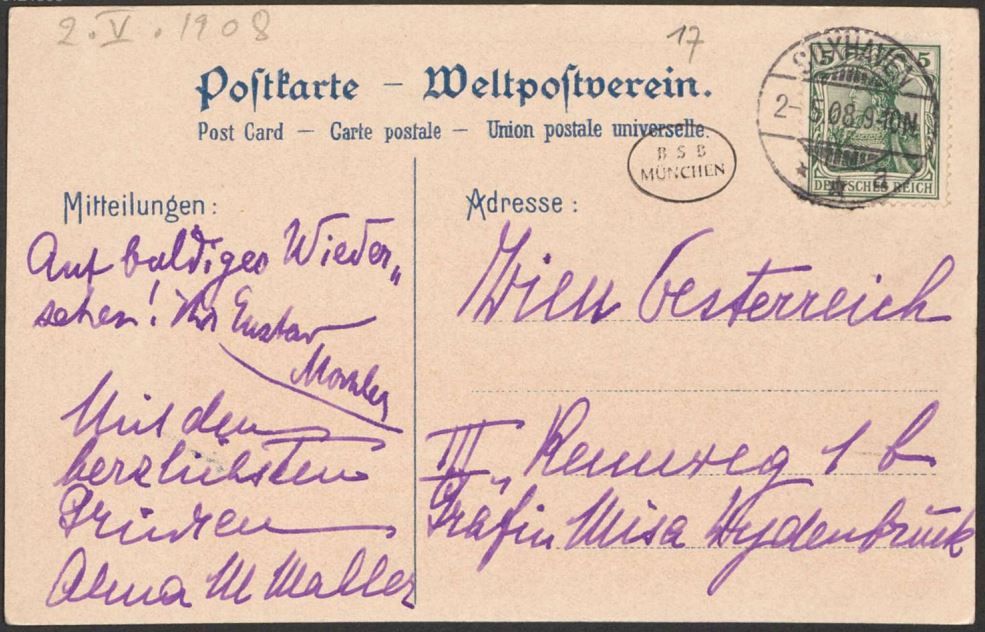 2. V. 1908
17
Postkarte – Weltpostverein.
Post Card – Carte postale – Union postale universelle.
BSB
MÜNCHEN
CUXHAVEN
2-5.08.9-10N
a
5 5
DEUTSCHES REICH
Mitteilungen:
Auf baldiges Wieder„
sehen! Ihr Gustav
Mahler
Mit den
herzlichsten
Grüssen
Alma M Mahler
Adresse:
Wien Oesterreich
III, Rennweg 1 b
Gräfin Misa Wydenbruck